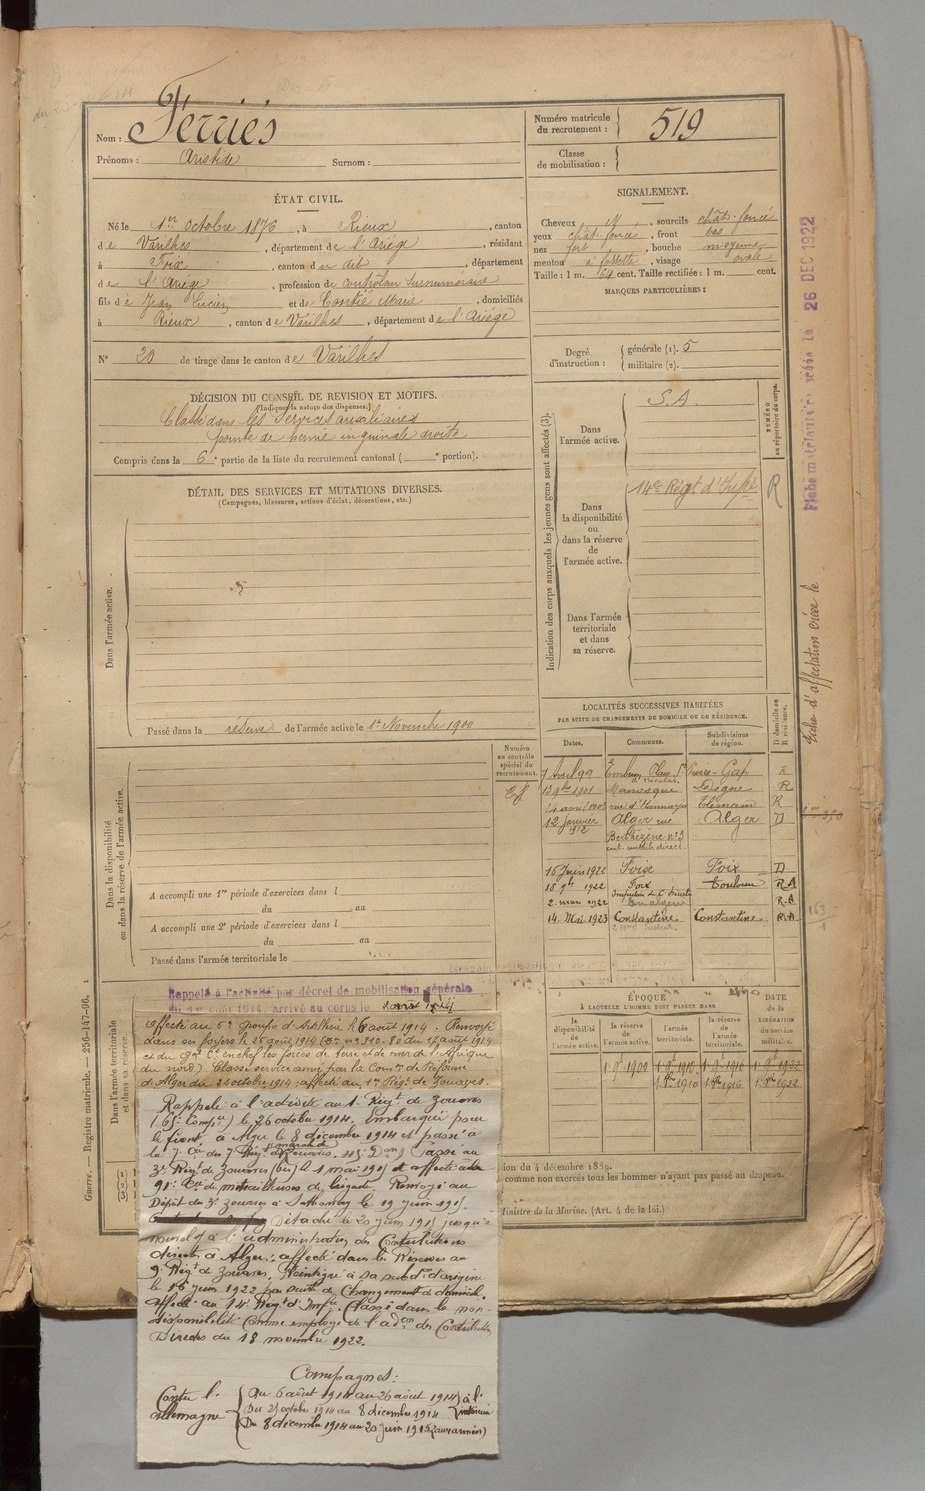 Nom : Ferriès
Prénoms : Aristide Surnom :
Numéro matricule du recrutement : 519
Classe de mobilisation :
ÉTAT CIVIL.
Né le 1er octobre 1876, à Rieux, canton
de Varilhes, département de l'Ariège, résidant
à Foix, canton du dit, département
de l'Ariège, profession de contrôleur Surnuméraire
fils de Jean Lucien et de Contié Marie, domiciliés
à Rieux, canton de Varilhes, département de l'Ariège
N° 20 de tirage dans le canton de Varilhes
SIGNALEMENT.
Cheveux N, sourcils chât. foncé
yeux chât. foncé, front bas
nez fort, bouche moyenne
menton à fossette, visage ovale
Taille : 1 m. 64 cent. Taille rectifiée : 1 m. cent.
MARQUES PARTICULIÈRES :
Degré d'instruction : générale (1). 5
militaire (2).
DÉCISION DU CONSEIL DE REVISION ET MOTIFS.
(Indiquer la nature des dispenses.)
Classé dans les Services auxiliaires
pointe de hernie inguinale droite
Compris dans la 6e partie de la liste du recrutement cantonal ( e portion).
DÉTAIL DES SERVICES ET MUTATIONS DIVERSES.
(Campagnes, blessures, actions d'éclat, décorations, etc.)
Dans l'armée active.
Passé dans la réserve de l'armée active le 1er Novembre 1900
Indication des corps auxquels les jeunes gens sont affectés (3).
Dans l'armée active.
S.A.
Dans la disponibilité ou dans la réserve de l'armée active.
14e Régt d'Inf
Dans l'armée territoriale et dans sa réserve.
NUMÉRO au répertoire du corps.
R
Fiche matriculaire créée le 26 DEC 1922
Fiche d'affectation créée le
Numéro au contrôle spécial du recrutement.
Dans la disponibilité ou dans la réserve de l'armée active.
A accompli une 1re période d'exercices dans l
du au
A accompli une 2e période d'exercices dans l
du au
Passé dans l'armée territoriale le
LOCALITÉS SUCCESSIVES HABITÉES
PAR SUITE DE CHANGEMENTS DE DOMICILE OU DE RÉSIDENCE.
Dates. Communes. Subdivisions de région. D domicile ou R résidence.
7 avril 99 Embrun Gap R
1901 Manosque Digne R
14 avril Tlemcen R
12 janvier 912 Alger rue Alger D
Berthezène n° 3
cont. contrib. direct.
16 Juin 1922 Foix Foix D
18 9bre 1922 Foix Toulouse R.A
2. mars 1922 R.A
14. Mai 1923 Constantine Constantine R.A
163
Rappelé à l'activité par décret de mobilisation générale
du 1er août 1914. Arrivé au corps le
ÉPOQUE
À LAQUELLE L'HOMME DOIT PASSER DANS
la disponibilité de l'armée active. la réserve de l'armée active. l'armée territoriale. la réserve de l'armée territoriale. DATE DE LA LIBÉRATION du service militaire.
1. 9bre 1900 1. 9bre 1910 1. 9bre 1916 1. 9bre 1922
Dans l'armée territoriale et dans sa réserve.
Guerre. — Registre matricule. — 256-147-96.
affecté au 6e groupe d'Artillerie le 6 août 1914. Renvoyé
dans ses foyers le 26 août 1914 (D. n° 310-80 du 17 août 1914
et du Gal Ct en chef les forces de terre et de mer de l'Afrique
du nord) Classé service armé par la Comon de Réforme
d'Alger du 21 octobre 1914 ; affecté au 1er Régt de Zouaves.
Rappelé à l'activité au 1. Régt de Zouaves
(6e Compie) le 26 octobre 1914. Embarqué pour
le front à Alger le 8 décembre 1914 et passé à
la 7e Cie du 7e Régt de marche de Zouaves. Passé au
3e Régt de Zouaves (bis) le 1 mai 1915 et affecté à la
91e Cie de mitrailleuses de brigade. Renvoyé au
Dépôt du 3e Zouaves à Sathonay le 19 juin 1915.
Détaché le 20 juin 1915 jusqu'à
nouvel à l'administration des Contributions
directes à Alger ; affecté dans les Réserves au
9. Régt de Zouaves. Réintégré à sa subdon d'origine
le 16 juin 1922 par suite de Changement de domicile.
affecté au 14e Régt d'Infie. Classé dans la non
disponibilité comme employé de l'adon des Contributions
Directes du 18 novembre 1922.
Campagnes :
Contre l'allemagne
Du 6 août 1914 au 26 août 1914 à l'intérieur
Du 21 octobre 1914 au 8 décembre 1914
Du 8 décembre 1914 au 20 juin 1915 (aux armées)
ion du 4 décembre 1889.
comme non exercés tous les hommes n'ayant pas passé au drapeau.
Ministre de la Marine. (Art. 4 de la loi.)